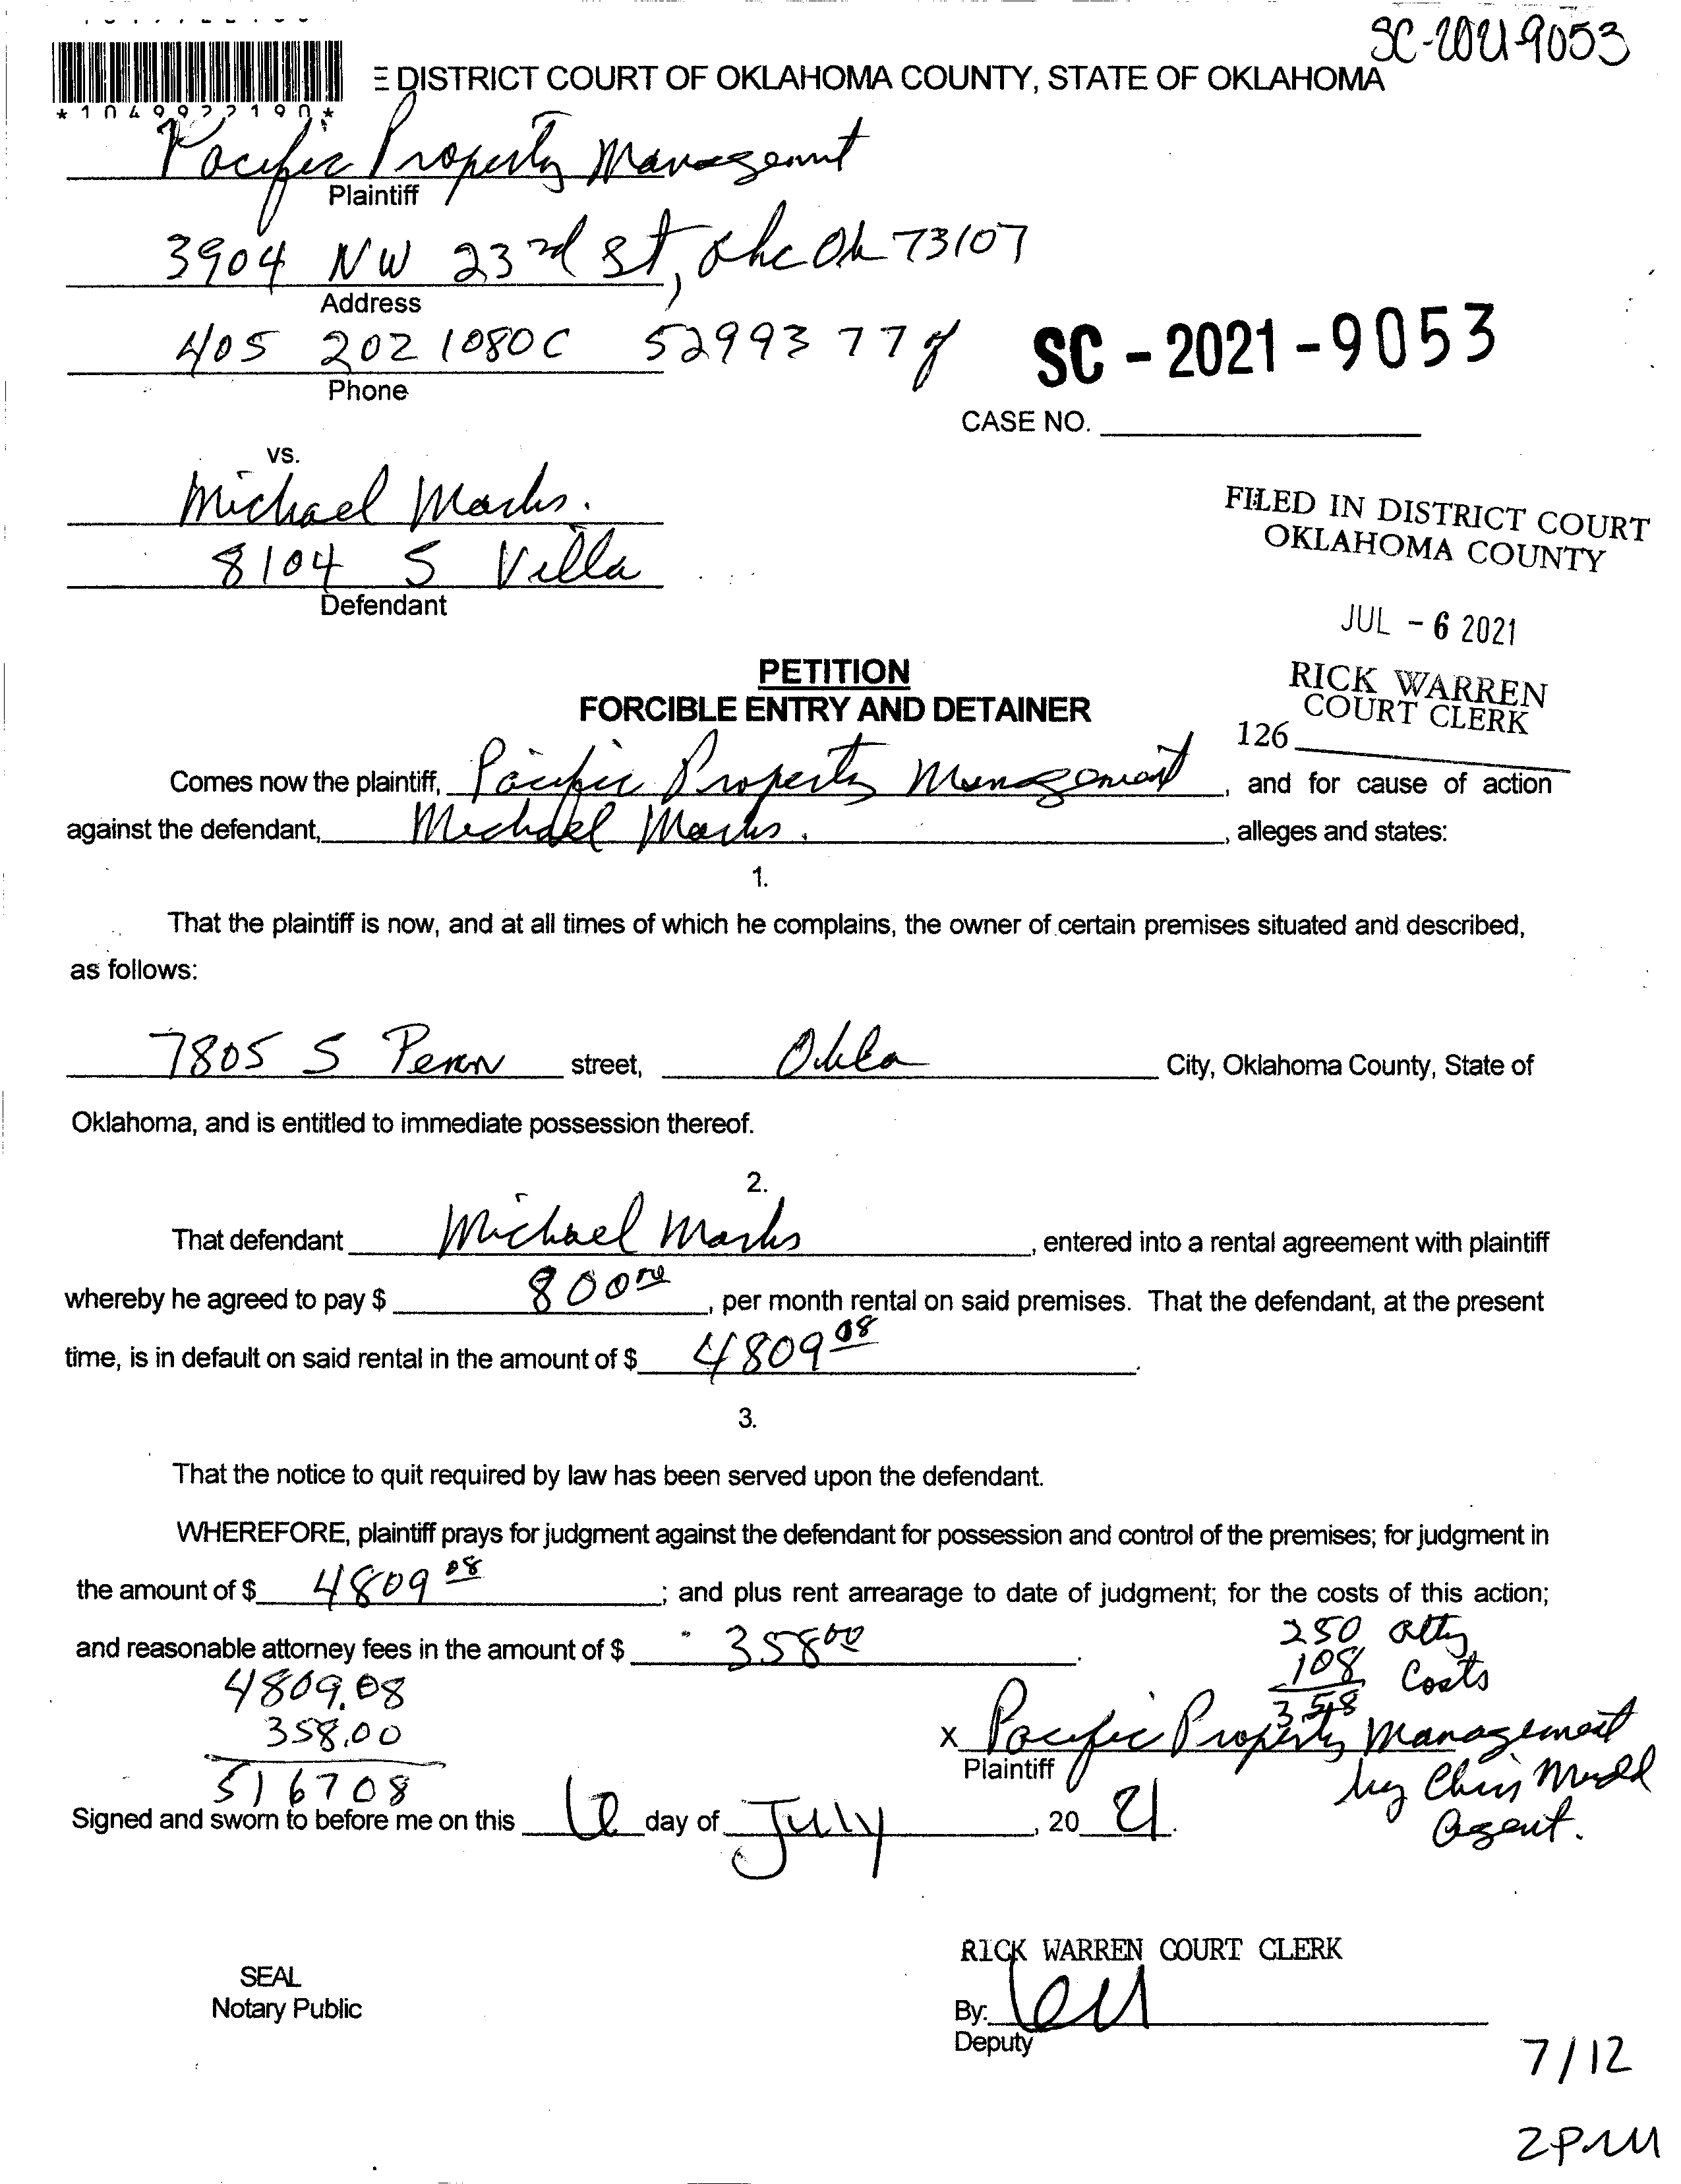 SC-2021-9053
*1049922190*
E DISTRICT COURT OF OKLAHOMA COUNTY, STATE OF OKLAHOMA
Pacific Property Management
Plaintiff
3904 NW 23rd St, Okc Ok 73107
Address
405 202 1080 C 5299377
Phone
SC - 2021 - 9053
CASE NO.
vs.
Michael Marks.
8104 S Villa
Defendant
FILED IN DISTRICT COURT
OKLAHOMA COUNTY
JUL - 6 2021
RICK WARREN
COURT CLERK
126
PETITION
FORCIBLE ENTRY AND DETAINER
Comes now the plaintiff, Pacific Property Management, and for cause of action
against the defendant, Michael Marks., alleges and states:
1.
That the plaintiff is now, and at all times of which he complains, the owner of certain premises situated and described,
as follows:
7805 S Penn street, Okla City, Oklahoma County, State of
Oklahoma, and is entitled to immediate possession thereof.
2.
That defendant Michael Marks, entered into a rental agreement with plaintiff
whereby he agreed to pay $ 800, per month rental on said premises. That the defendant, at the present
time, is in default on said rental in the amount of $ 4809 08.
3.
That the notice to quit required by law has been served upon the defendant.
WHEREFORE, plaintiff prays for judgment against the defendant for possession and control of the premises; for judgment in
the amount of $ 4809 08; and plus rent arrearage to date of judgment; for the costs of this action;
and reasonable attorney fees in the amount of $ 358 00.
250 atty
108 Costs
358
4809.08
358.00
516708
x Pacific Property Management
Plaintiff
by Chris Mudd
Agent.
Signed and sworn to before me on this 6 day of July, 20 21.
RICK WARREN COURT CLERK
SEAL
Notary Public
By:
Deputy
7/12
2PM